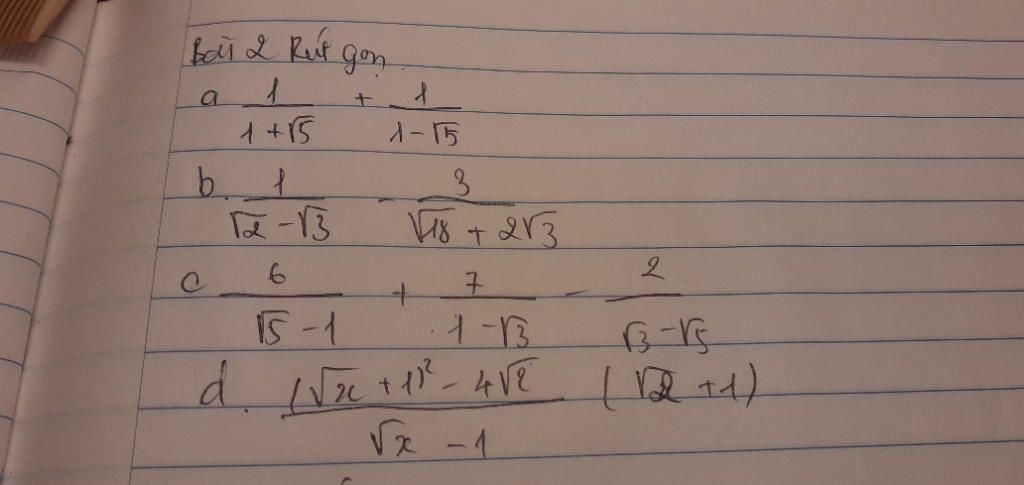 Bài 2 Rút gọn
a 1/(1+√5) + 1/(1-√5)
b. 1/(√2-√3) - 3/(√18+2√3)
c 6/(√5-1) + 7/(1-√3) - 2/(√3-√5)
d. ((√x+1)²-4√x)/(√x-1) (√x+1)